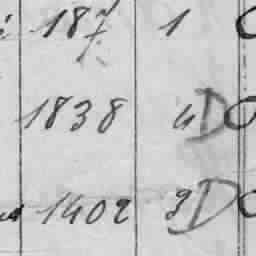 187 1
1838 4D
1402 3D